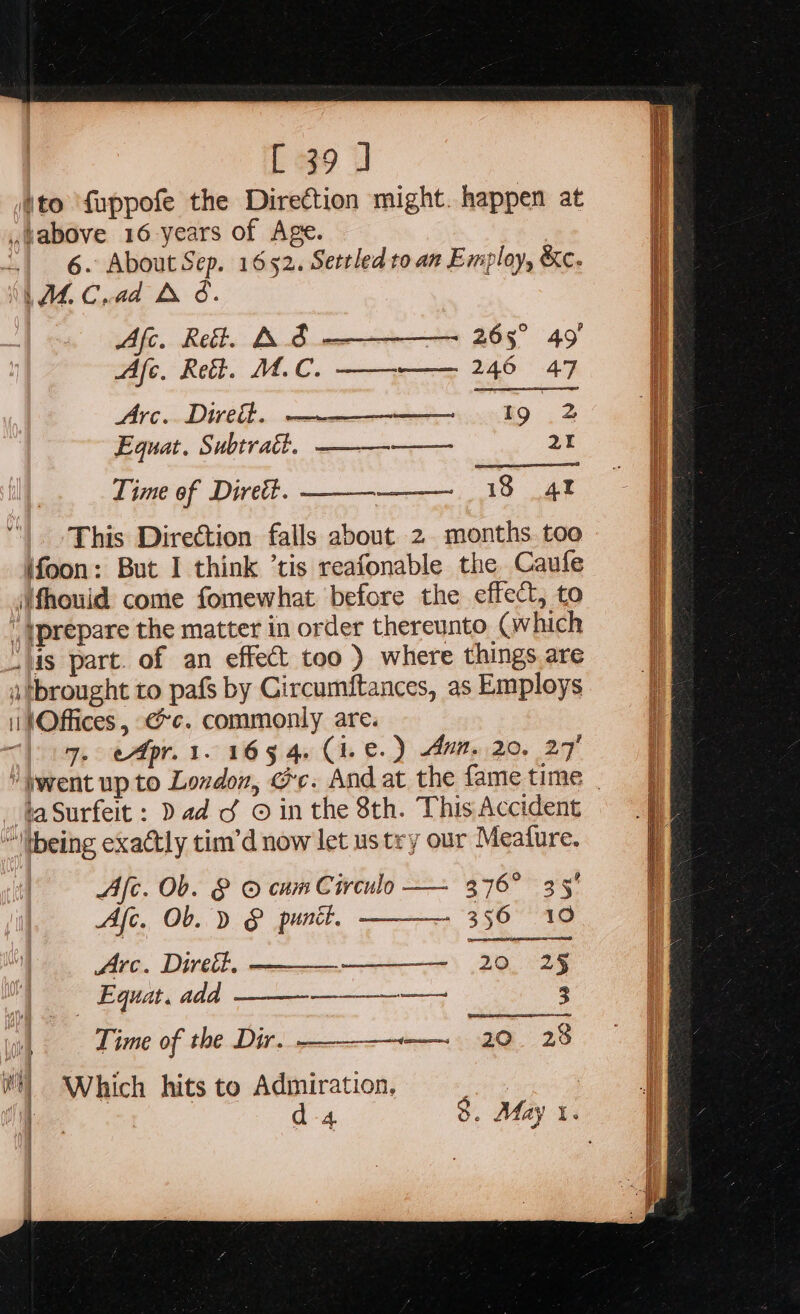 [ 39 ]
to ſuppoſe the Direction might happen at
above 16 years of Age.
6. About Sep. 1652. Settled to an Employ, &c.
M. C. ad △ ♂.
Aſc. Rect. △ ♂ ——— 265° 49'
Aſc. Rect. M.C. ——— 246 47
Arc. Direct. ——— 19 2
Equat. Subtract. ——— 21
Time of Direct. ——— 18 41
This Direction falls about 2 months too
ſoon: But I think 'tis reaſonable the Cauſe
ſhould come ſomewhat before the effect, to
prepare the matter in order thereunto (which
is part of an effect too) where things are
brought to paſs by Circumſtances, as Employs
Offices, &c. commonly are.
7. Apr. 1. 1654. (i. e.) Ann. 20. 27'
went up to London, &c. And at the ſame time
a Surfeit: ☽ ad ☌ ☉ in the 8th. This Accident
being exactly tim'd now let us try our Meaſure.
Aſc. Ob. ☍ ☉ cum Circulo —— 376° 35'
Aſc. Ob. ☽ ☍ punct. ——— 356 10
Arc. Direct. ——— 20 25
Equat. add ——— 3
Time of the Dir. ——— 20 28
Which hits to Admiration.
d 4 8. May 1.